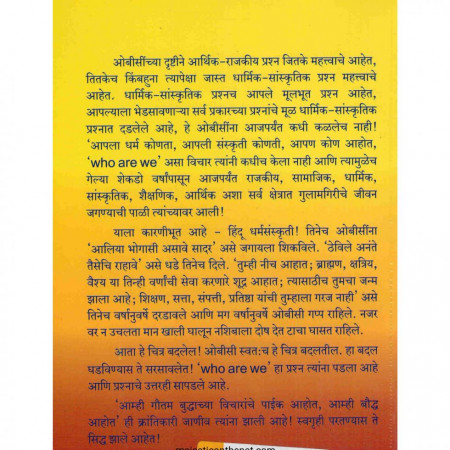 ओबीसींच्या दृष्टीने आर्थिक-राजकीय प्रश्न जितके महत्त्वाचे आहेत,
तितकेच किंबहुना त्यापेक्षा जास्त धार्मिक-सांस्कृतिक प्रश्न महत्त्वाचे
आहेत. धार्मिक-सांस्कृतिक प्रश्नच आपले मूलभूत प्रश्न आहेत,
आपल्याला भेडसावणाऱ्या सर्व प्रकारच्या प्रश्नांचे मूळ धार्मिक-सांस्कृतिक
प्रश्नात दडलेले आहे, हे ओबीसींना आजपर्यंत कधी कळलेच नाही!
'आपला धर्म कोणता, आपली संस्कृती कोणती, आपण कोण आहोत,
'who are we' असा विचार त्यांनी कधीच केला नाही आणि त्यामुळेच
गेल्या शेकडो वर्षांपासून आजपर्यंत राजकीय, सामाजिक, धार्मिक,
सांस्कृतिक, शैक्षणिक, आर्थिक अशा सर्व क्षेत्रात गुलामगिरीचे जीवन
जगण्याची पाळी त्यांच्यावर आली!
याला कारणीभूत आहे - हिंदू धर्मसंस्कृती! तिनेच ओबीसींना
'आलिया भोगासी असावे सादर' असे जगायला शिकविले. 'ठेविले अनंते
तैसेचि राहावे' असे धडे तिनेच दिले. 'तुम्ही नीच आहात; ब्राह्मण, क्षत्रिय,
वैश्य या तिन्ही वर्णांची सेवा करणारे शूद्र आहात; त्यासाठीच तुमचा जन्म
झाला आहे; शिक्षण, सत्ता, संपत्ती, प्रतिष्ठा यांची तुम्हाला गरज नाही' असे
तिनेच वर्षानुवर्षे दरडावले आणि मग वर्षानुवर्षे ओबीसी गप्प राहिले. नजर
वर न उचलता मान खाली घालून नशिबाला दोष देत टाचा घासत राहिले.
आता हे चित्र बदलेल! ओबीसी स्वत:च हे चित्र बदलतील. हा बदल
घडविण्यास ते सरसावलेत! 'who are we' हा प्रश्न त्यांना पडला आहे
आणि प्रश्नाचे उत्तरही सापडले आहे.
'आम्ही गौतम बुद्धाच्या विचारांचे पाईक आहोत, आम्ही बौद्ध
आहोत' ही क्रांतिकारी जाणीव त्यांना झाली आहे! स्वगृही परतण्यास ते
सिद्ध झाले आहेत!